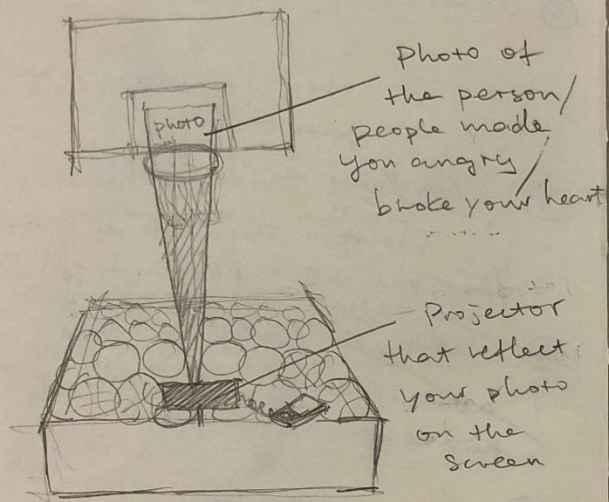 photo
photo of
the person/
people made
you angry/
broke your heart
......
projector
that reflect
your photo
on the
screen